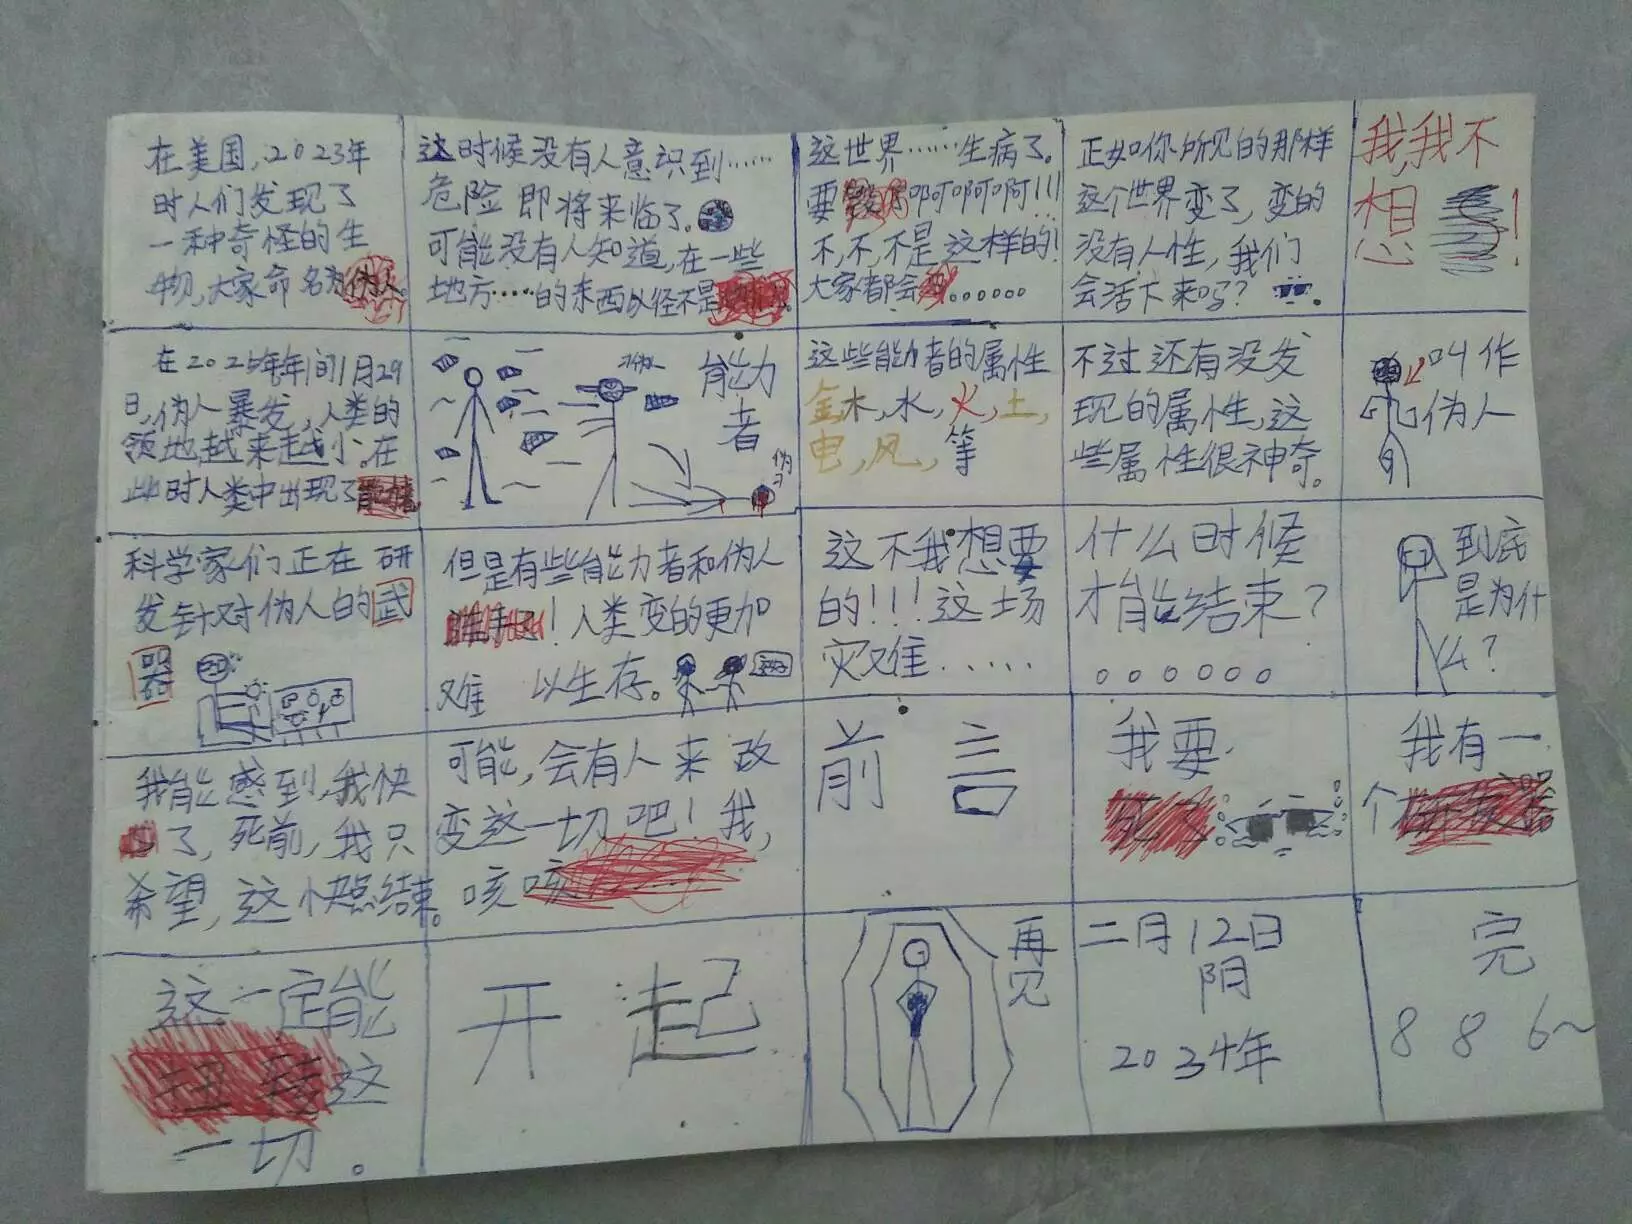 在美国,2023年
时人们发现了
一种奇怪的生
物,大家命名为伪人
这时候没有人意识到……
危险即将来临了。
可能没有人知道,在一些
地方……的东西以径不是
这世界……生病了。
要毁了啊啊啊啊!!!
不,不,不是这样的!
大家都会……。。。。。。
正如你所见的那样
这个世界变了,变的
没有人性,我们
会活下来吗?
我,我不
想!
在2025年年间1月29
日,伪人暴发,人类的
领地越来越小。在
此时人类中出现了
能力
者
伪
这些能力者的属性
金,木,水,火,土,
电,风,等
不过还有没发
现的属性,这
些属性很神奇。
叫作
伪人
科学家们正在研
发针对伪人的武
器
但是有些能力者和伪人
联手了!人类变的更加
难以生存。
这不我想要
的!!!这场
灾难……
什么时候
才能结束?
。。。。。。
到底
是为什
么?
我能感到,我快
了,死前,我只
希望,这快点结束。
可能,会有人来改
变这一切吧!我,
咳咳
前言
我要
死了
我有一
个
这一定能
扭转这
一切。
开起
再
见
二月12日
阴
2034年
完
886~